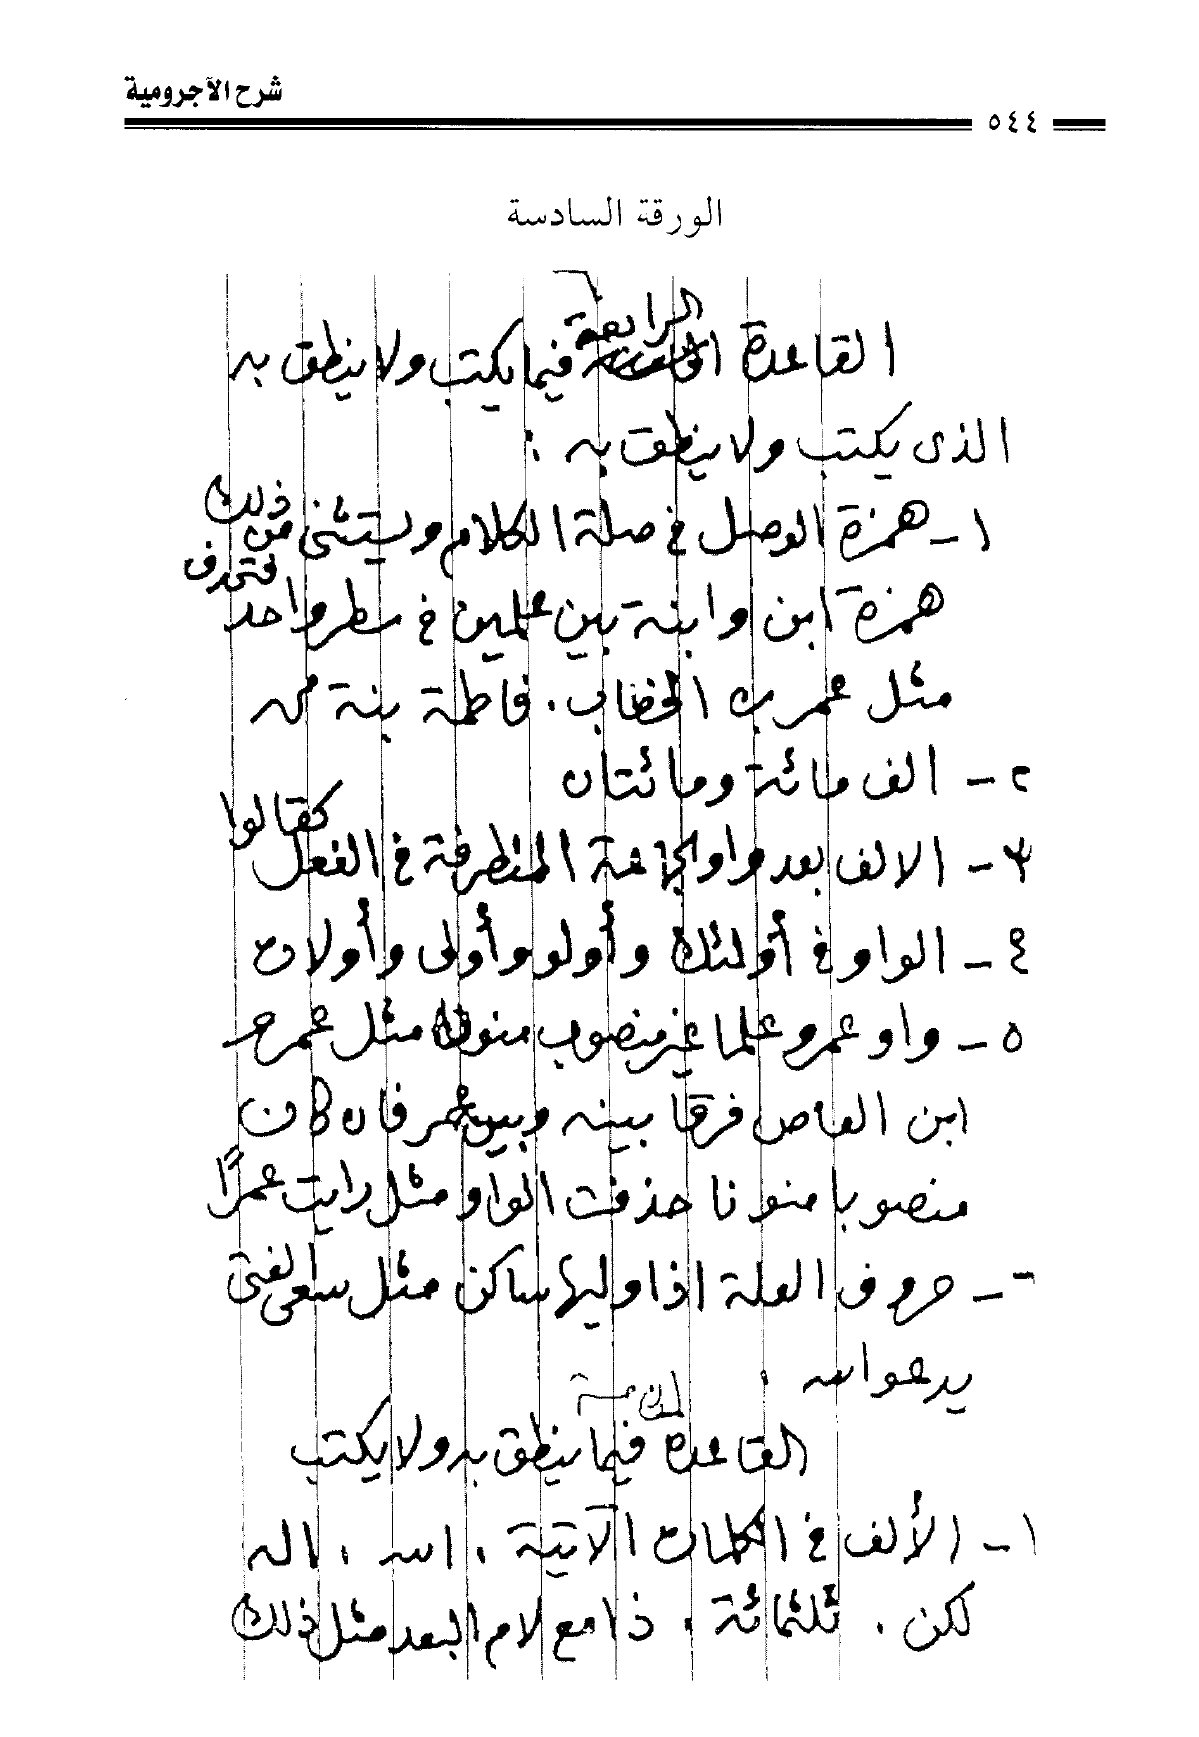 شرح الآجرومية
٥٤٤
الورقة السادسة
القاعدة الرابعة فيما يكتب ولا ينطق به
الذى يكتب ولا ينطق به :
١ـ همزة الوصل فى صلة الكلام ويستثنى من ذلك
همزة ابن وابنة بين علمين فى سطر واحد فتحذف
مثل عمر بن الخطاب . فاطمة بنة محمد
٢ـ ألف مائة ومائتان
٣ـ الالف بعد واو الجماعة المتطرفة فى الفعل كقالوا
٤ـ الواو فى أولئك وأولو وأولى وأولات
٥ـ واو عمرو علما غير منصوب منون مثل عمرو
ابن العاص فرقا بينه وبين عمر فان كان
منصوبا منونا حذفت الواو مثل رايت عمرًا
٦ـ حروف العلة اذا وليها ساكن مثل سعى الفتى
يدعو الله .
القاعدة الخامسة فيما ينطق به ولا يكتب
١ـ الألف فى الكلمات الآتية . الله . اله
لكن . ثلثمائة . ذا مع لام البعد مثل ذلك